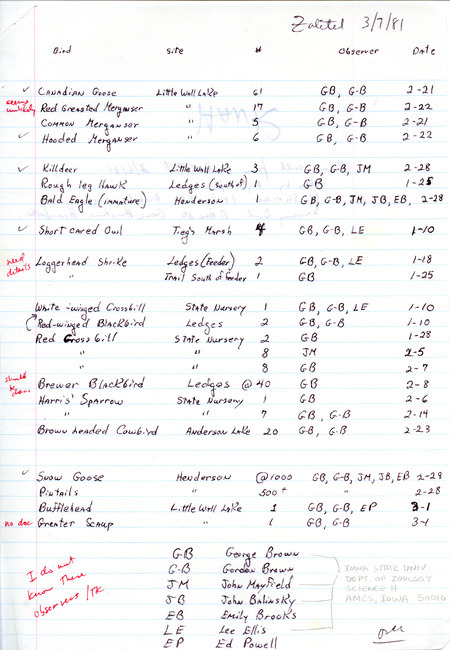 Zaletel 3/7/81
Bird Site # Observer Date
✓ Canadian Goose Little Wall Lake 61 GB, G-B 2-21
seems unlikely Red Breasted Merganser " 17 GB, G-B 2-22
Common Merganser " 5 GB, G-B 2-21
✓ Hooded Merganser " 6 GB, G-B 2-22
✓ Killdeer Little Wall Lake 3 GB, G-B, JM 2-28
Rough leg Hawk Ledges (South of) 1 GB 1-25
Bald Eagle (immature) Henderson 1 GB, G-B, JM, JB, EB, 2-28
✓ Short eared Owl Tieg's Marsh 4 GB, G-B, LE 1-10
need details Loggerhead Shrike Ledges (Feeder) 2 GB, G-B, LE 1-18
" Trail South of Feeder 1 GB 1-25
White-winged Crossbill State Nursery 1 GB, G-B, LE 1-10
Red-winged Blackbird Ledges 2 GB, G-B 1-10
Red Crossbill State Nursery 2 GB 1-28
" " 8 JM 2-5
" " 8 GB 2-7
Brewer Blackbird Ledges @ 40 GB 2-8
Harris' Sparrow State Nursery 1 GB 2-6
" " 7 GB, G-B 2-14
Brown headed Cowbird Anderson Lake 20 GB, G-B 2-23
✓ Snow Goose Henderson @1000 GB, G-B, JM, JB, EB 2-28
Pintails " 500+ " 2-28
Bufflehead Little Wall Lake 1 GB, G-B, EP 3-1
no doc Greater Scaup " 1 GB, G-B 3-1
GB George Brown
G-B Gordon Brown
JM John Mayfield
JB John Balinsky
EB Emily Brooks
LE Lee Ellis
EP Ed Powell
I do not know these observers /TK
IOWA STATE UNIV.
DEPT. OF ZOOLOGY
SCIENCE II
AMES, IOWA 50010
over